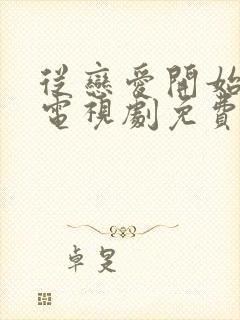 從戀愛開始
電視劇免費
卓昱